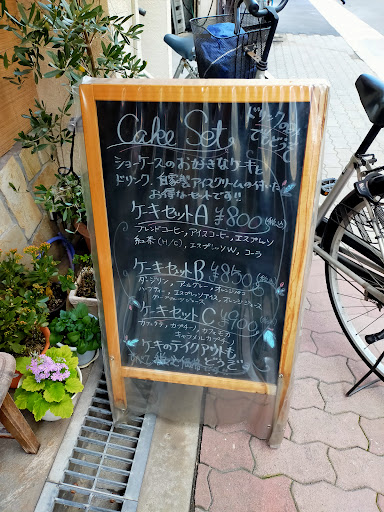 Cake Set
ドリンクのみ
でもどうぞ
ショーケースのお好きなケーキと
ドリンク、自家製アイスクリームの付いた
お得なセットです!!
ケーキセットA ¥800(税込)
ブレンドコーヒー,アイスコーヒー,エスプレッソ
紅茶(H/C),エスプレッソW,コーラ
ケーキセットB ¥850(税込)
ダージリン,アールグレー,オレンジ
ケーキセットC ¥900(税込)
カフェラテ,カプチーノ,カフェモカ
キャラメルカプチーノ
ケーキのテイクアウトも
どうぞ